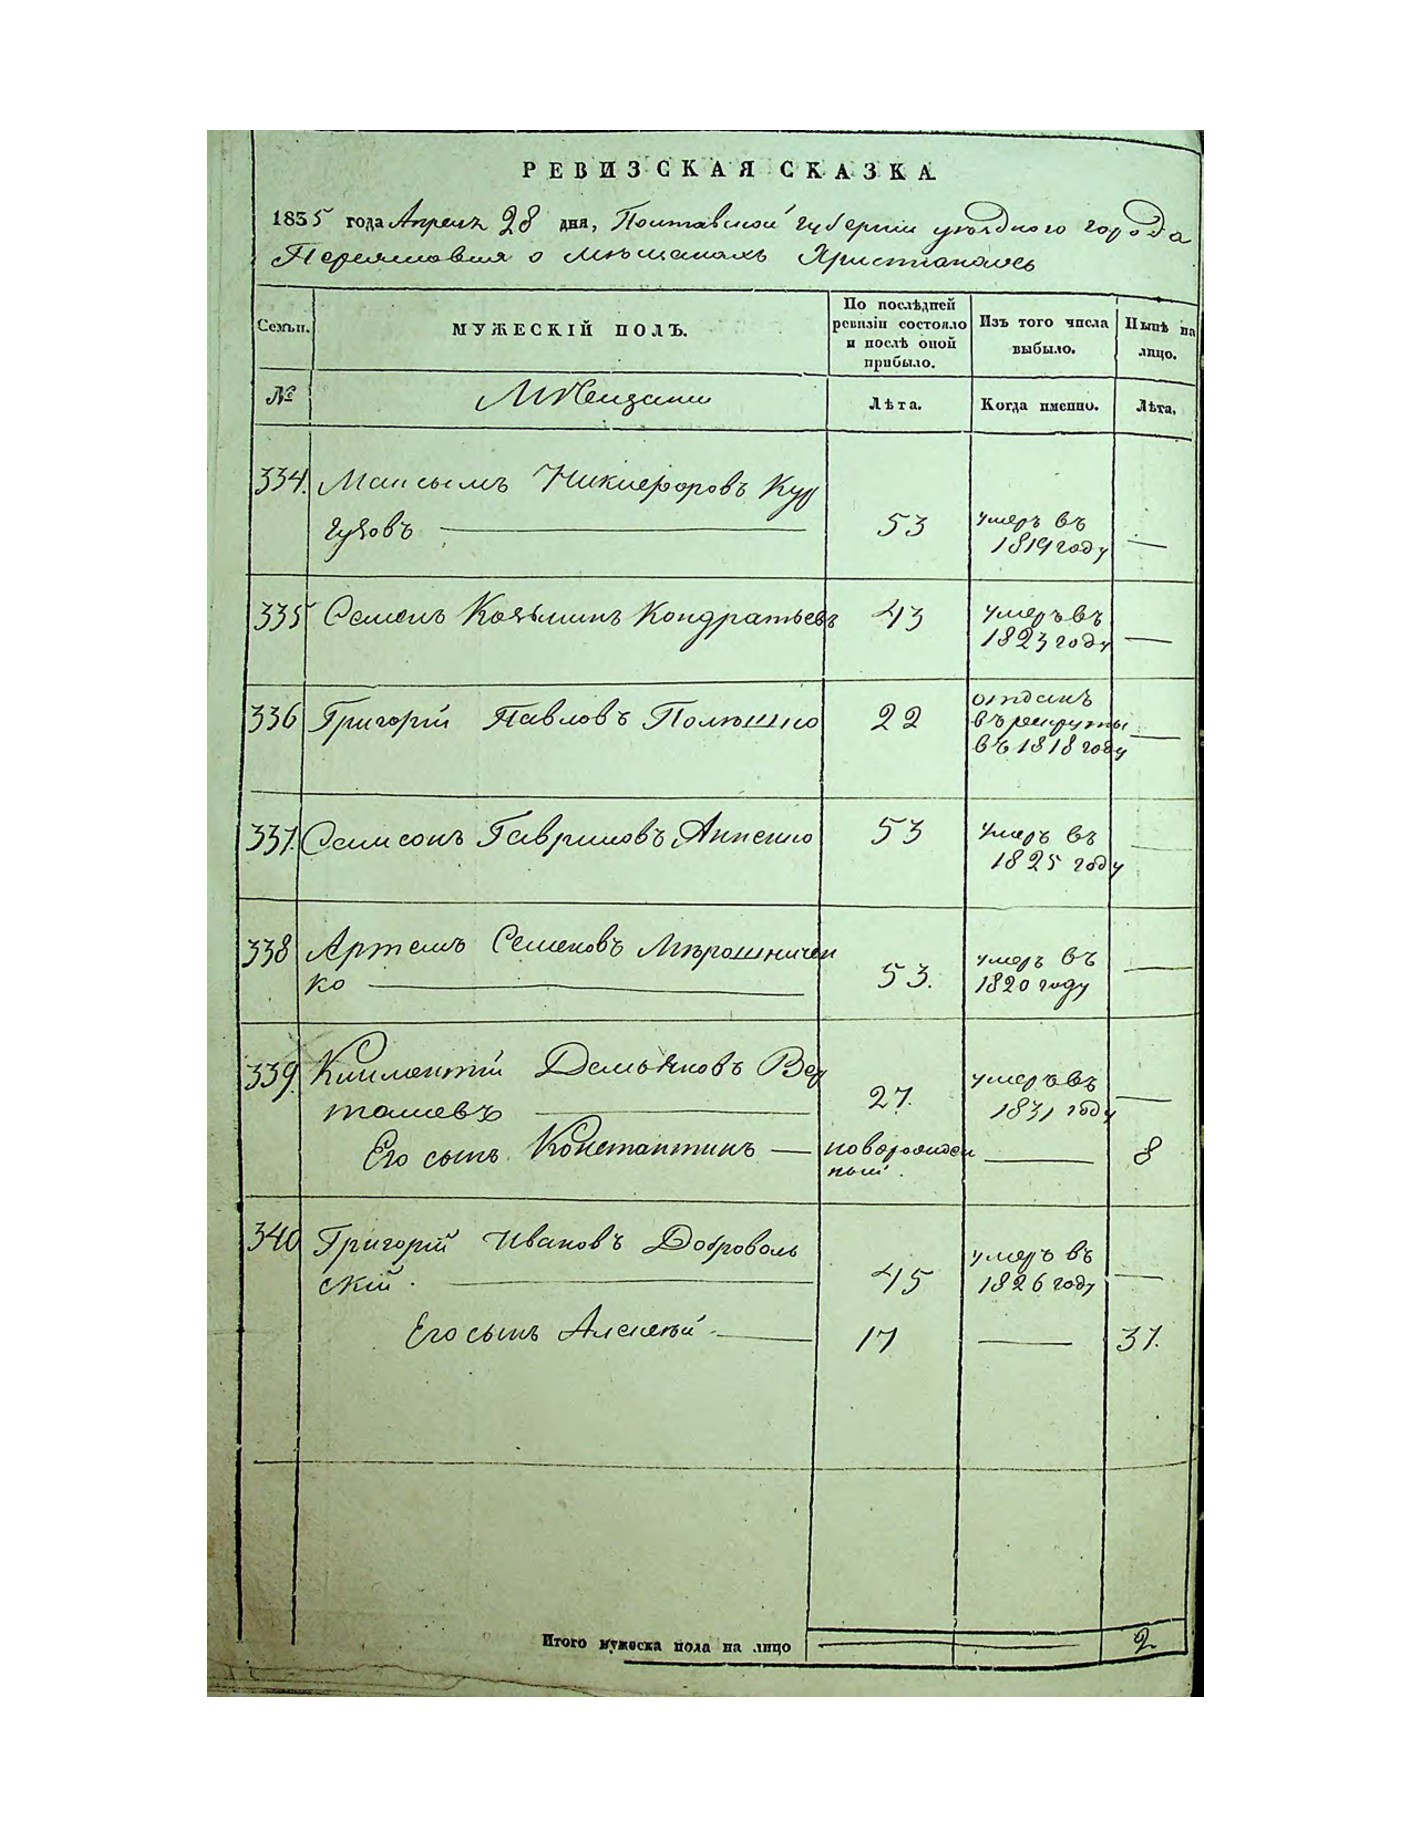 РЕВИЗСКАЯ СКАЗКА
1835 года Апреля 28 дня, Полтавской губернiи уѣзднаго города
Переяславля о мѣщанахъ Христiанахъ
Семьи.
МУЖЕСКIЙ ПОЛЪ.
По послѣдней
ревизiи состояло
и послѣ оной
прибыло.
Изъ того числа
выбыло.
Нынѣ на
лицо.
№
Мѣщани
Лѣта.
Когда именно.
Лѣта.
334. Максымъ Никифоровъ Кур
гузовъ 53 умеръ въ
1819 году
335 Семенъ Козьминъ Кондратьевъ 43 умеръ въ
1823 году
336 Григорiй Павловъ 22 отданъ
въ рекруты
въ 1818 году
337. Самсонъ Гавриловъ 53 умеръ въ
1825 году
338 Артемъ Семеновъ Мѣрошничен
ко 53. умеръ въ
1820 году
339. Климентiй Демьяновъ Вер
27. умеръ въ
1831 году
Его сынъ Константинъ новорожден
ный. 8
340 Григорiй Ивановъ Доброволь
скiй. 45 умеръ въ
1826 году
Его сынъ Алексѣй 17 37.
Итого мужеска пола на лицо 2